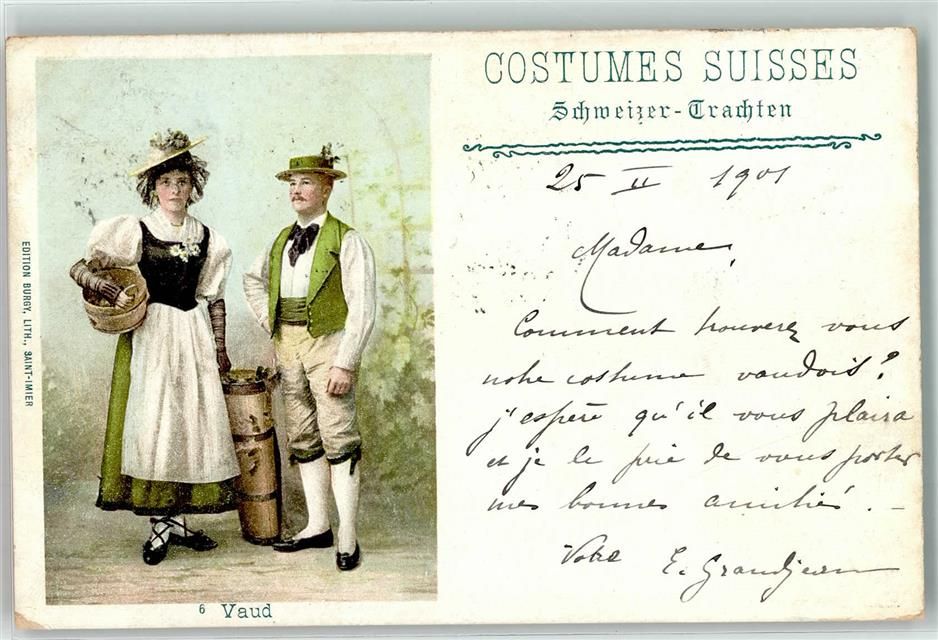 COSTUMES SUISSES
Schweizer-Trachten
25 II 1901
Madame,
Comment trouverez vous
notre costume vaudois?
j'espère qu'il vous plaira
et je le prie de vous porter
mes bonnes amitiés. -
Votre E. Grandjean
EDITION BURGY, LITH., SAINT-IMIER
6 Vaud